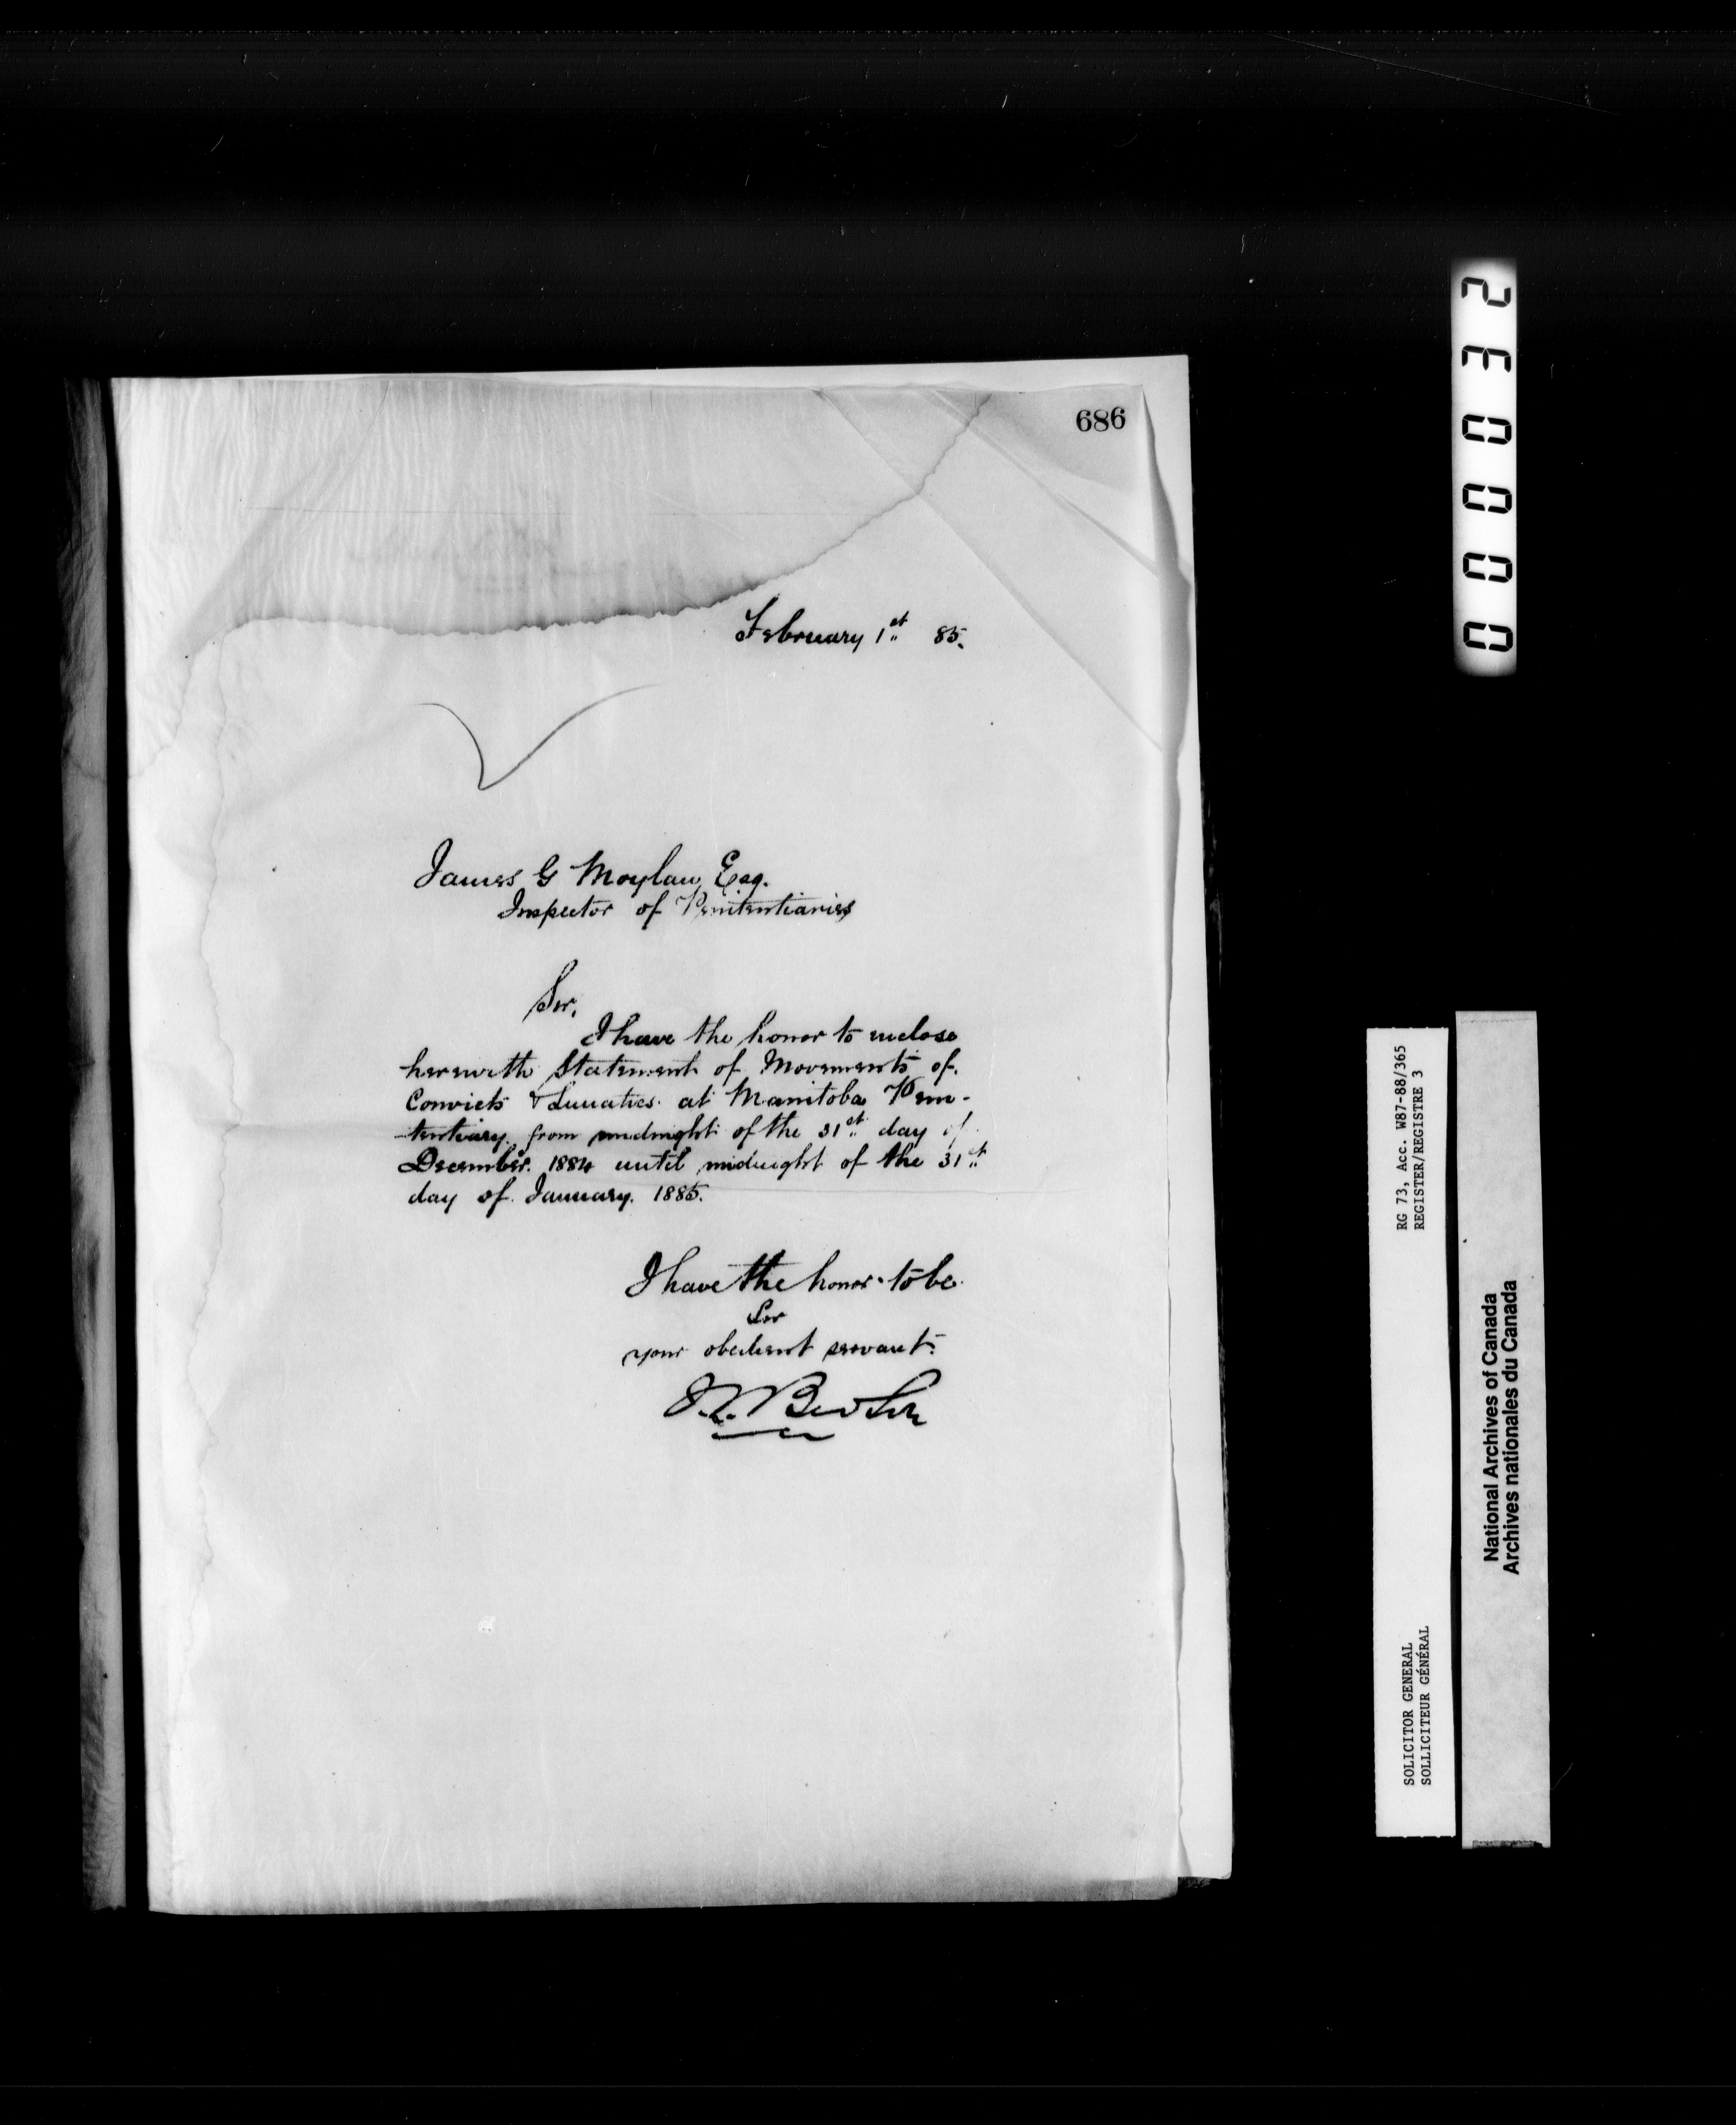 686
February 1st 85.
James G Moylan Esq.
Inspector of Penitentiaries
Sir,
I have the honor to enclose
herewith Statement of Movements of
Convicts & Lunatics at Manitoba Peni-
tentiary from midnight of the 31st day of
December 1884 until midnight of the 31st
day of January 1885.
I have the honor to be
Sir
your obedient servant
230000
RG 73, Acc. W87-88/365
REGISTER/REGISTRE 3
SOLICITOR GENERAL
SOLLICITEUR GÉNÉRAL
National Archives of Canada
Archives nationales du Canada